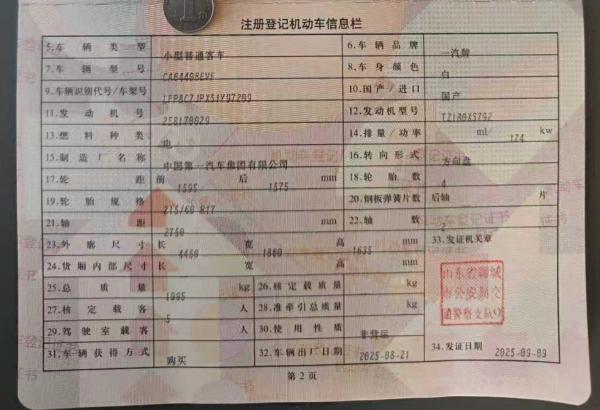 注册登记机动车信息栏
5.车辆类型 小型普通客车 6.车辆品牌 一汽牌
7.车辆型号 8.车身颜色 白
9.车辆识别代号/车架号 10.国产/进口 国产
11.发动机号 12.发动机型号
13.燃料种类 电 14.排量/功率 ml/ 124 kw
15.制造厂名称 中国第一汽车集团有限公司 16.转向形式 方向盘
17.轮距 前 1595 后 1575 mm 18.轮胎数 4
19.轮胎规格 215/60 R17 20.钢板弹簧片数 后轴 片
21.轴距 2750 mm 22.轴数 2
23.外廓尺寸 长 4450 宽 1860 高 1635 mm 33.发证机关章
24.货厢内部尺寸 长 宽 高 mm
25.总质量 1995 kg 26.核定载质量 kg
27.核定载客 5 人 28.准牵引总质量 kg
29.驾驶室载客 人 30.使用性质 非营运
31.车辆获得方式 购买 32.车辆出厂日期 2025-08-21 34.发证日期 2025-09-09
山东省聊城
市公安局交
通警察支队
第2页